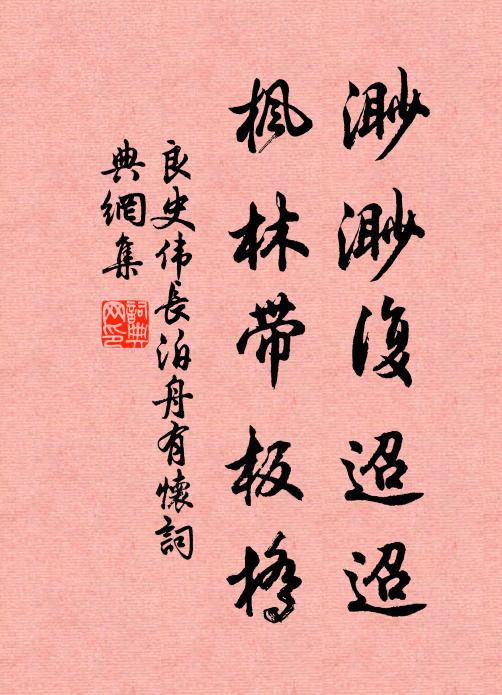 渺渺復迢迢
枫林带板桥
良史伟長泊舟有懷詞
典網集
詞典
网印